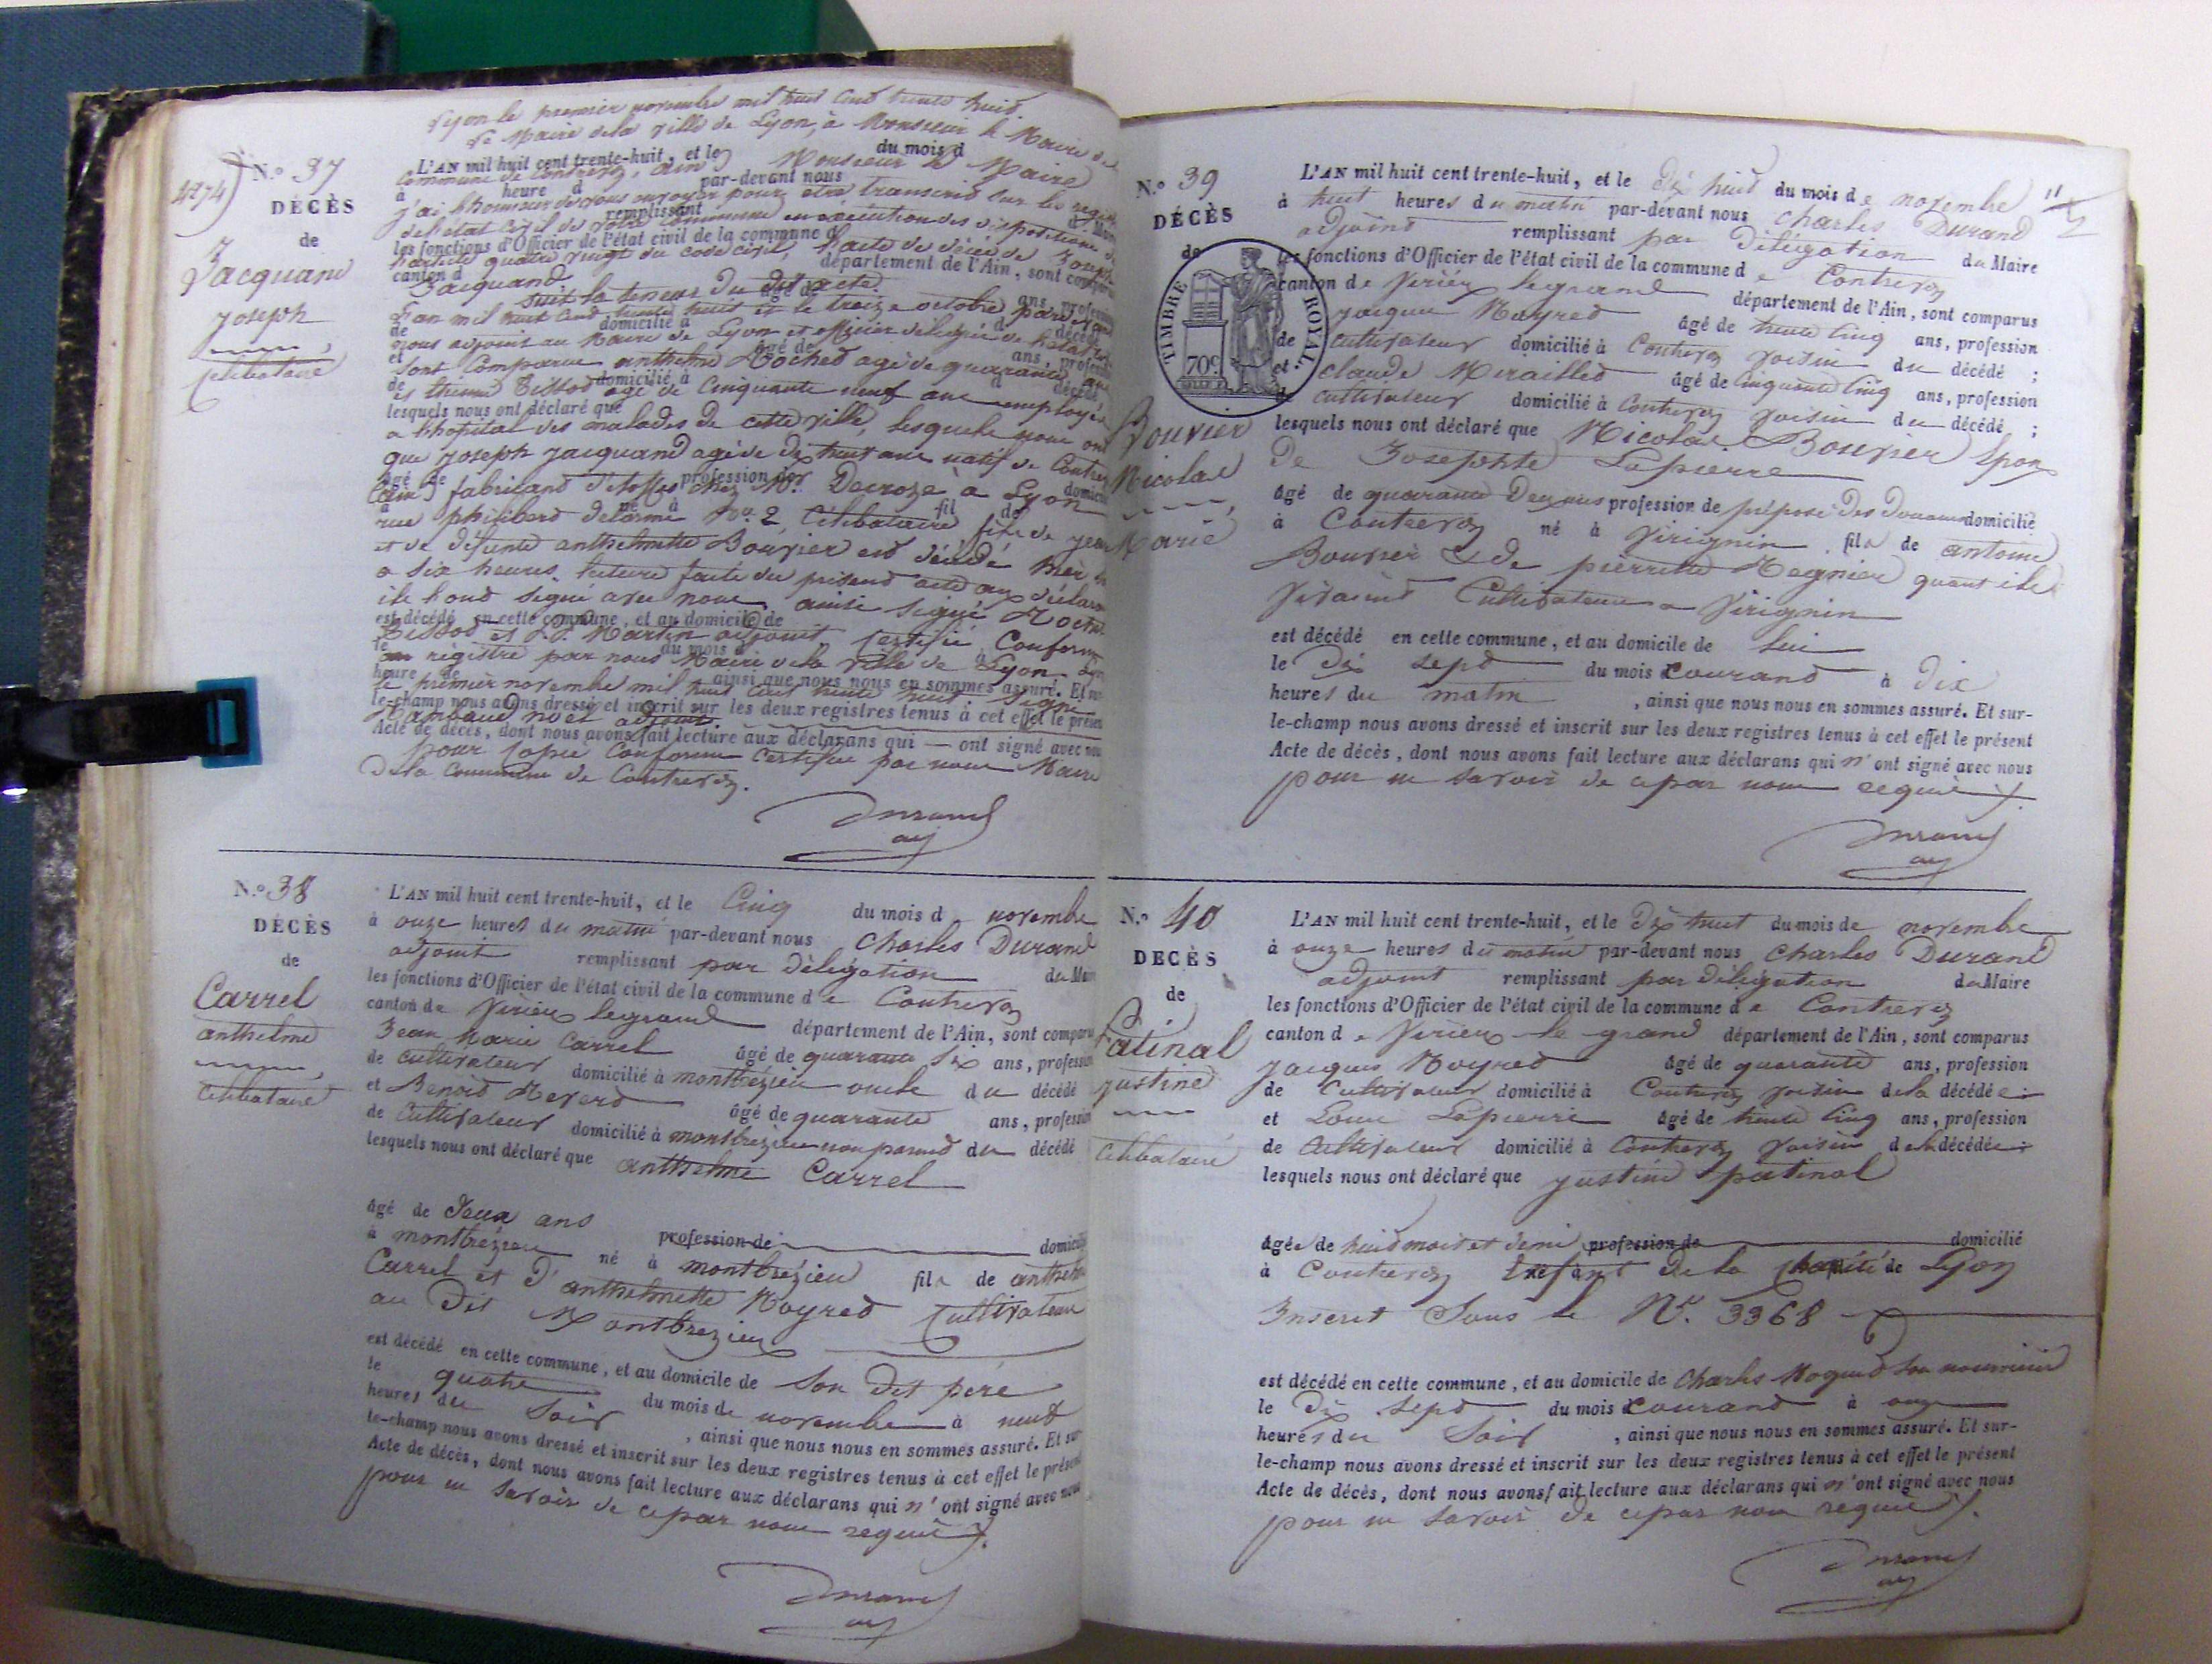 Lyon le premier novembre mil huit cent trente huit.
Le Maire de la ville de Lyon, à Monsieur le Maire de
N.o 37
DÉCÈS
de
Jacquand
joseph
célibataire
4274
L'AN mil huit cent trente-huit, et le du mois d
commune de Contrevoz, ain Monsieur le Maire
à heure d par-devant nous
j'ai l'honneur de vous envoyer pour être transcrit sur les
remplissant
de l'état civil de votre commune en exécution des dispositions de
les fonctions d'Officier de l'état civil de la commune d
l'article quatre vingt du code civil, l'acte de décès de Joseph
canton d département de l'Ain, sont comparus
Jacquand
suit la teneur du dit acte.
L'an mil huit cent trente huit et le treize octobre par devant
nous adjoint au Maire de Lyon et officier délégué de l'état civil
sont comparus anthelme Rochet agé de quarante
et Tissot agé de cinquante neuf ans employés
lesquels nous ont déclaré que
a l'hopital des malades de cette ville, lesquels nous ont
que joseph jacquand agé de dix huit ans natif de Contrevoz
(ain) fabricant d'étoffes chez Mr. Decroze à Lyon
rue philibert delorme No. 2, célibataire fils de jean
et de défunte anthelmette Bouvier est décédé hier
a six heures. lecture faite du présent acte aux déclarans
ils l'ont signé avec nous. ainsi signé Rochet
est décédé en cette commune, et au domicile de
Tissot et Martin adjoint Certifié Conforme
au registre par nous Maire de la ville de Lyon
heure ainsi que nous nous en sommes assuré. Et
le premier novembre mil huit cent trente huit. Signé
le-champ nous avons dressé et inscrit sur les deux registres tenus à cet effet le présent
adjoint.
Acte de décès, dont nous avons fait lecture aux déclarans qui — ont signé avec nous
pour copie Conforme Certifiée par nous Maire
de la Commune de Contrevoz.
Durand
adj
N.o 38
DÉCÈS
de
Carrel
anthelme
célibataire
L'AN mil huit cent trente-huit, et le Cinq du mois de novembre
à onze heures du matin par-devant nous Charles Durand
adjoint remplissant par délégation du Maire
les fonctions d'Officier de l'état civil de la commune de Contrevoz
canton de Virieu legrand département de l'Ain, sont comparus
Jean Marie Carrel âgé de quarante six ans, profession
de cultivateur domicilié à montbrézieu oncle du décédé
et Benoit âgé de quarante ans, profession
de Cultivateur domicilié à montbrézieu non parent du décédé
lesquels nous ont déclaré que anthelme Carrel
âgé de deux ans profession de domicilié
à montbrézieu né à montbrézieu fils de anthelme
Carrel et d'anthelmette Moyret Cultivateurs
au Dit Montbrezieu
est décédé en cette commune, et au domicile de Son Dit père
le quatre du mois de novembre à neuf
heures du Soir, ainsi que nous nous en sommes assuré. Et sur-
le-champ nous avons dressé et inscrit sur les deux registres tenus à cet effet le présent
Acte de décès, dont nous avons fait lecture aux déclarans qui n'ont signé avec nous
pour ne savoir de ce par nous requis.
Durand
adj
N.o 39
DÉCÈS
de
TIMBRE ROYAL
70c.
Bouvier
Nicolas
Marié
L'AN mil huit cent trente-huit, et le dix huit du mois de novembre
à huit heures du matin par-devant nous Charles Durand
adjoint remplissant par Délégation du Maire
les fonctions d'Officier de l'état civil de la commune de Contrevoz
canton de Virieu legrand département de l'Ain, sont comparus
jacques Moyret âgé de trente cinq ans, profession
de cultivateur domicilié à Contrevoz voisin du décédé ;
et claude Miraillet âgé de cinquante cinq ans, profession
de cultivateur domicilié à Contrevoz voisin du décédé ;
lesquels nous ont déclaré que Nicolas Bouvier Epoux
De Josephte Lapierre
âgé de quarante deux ans profession de préposé Des Douanes domicilié
à Contrevoz né à Virignin fils de antoine
Bouvier & de pierrette Regnier quand ils
vivaient Cultivateurs a Virignin
est décédé en cette commune, et au domicile de lui
le Dix sept du mois courant à dix
heures du matin, ainsi que nous nous en sommes assuré. Et sur-
le-champ nous avons dressé et inscrit sur les deux registres tenus à cet effet le présent
Acte de décès, dont nous avons fait lecture aux déclarans qui n'ont signé avec nous
pour ne savoir de ce par nous requis.
Durand
adj
N.o 40
DÉCÈS
de
Patinal
justine
célibataire
L'AN mil huit cent trente-huit, et le Dix huit du mois de novembre
à onze heures du matin par-devant nous Charles Durand
adjoint remplissant par délégation du Maire
les fonctions d'Officier de l'état civil de la commune de Contrevoz
canton de Virieu le grand département de l'Ain, sont comparus
Jacques Moyret âgé de quarante ans, profession
de Cultivateur domicilié à Contrevoz voisin de la décédée ;
et Louis Lapierre âgé de trente cinq ans, profession
de Cultivateur domicilié à Contrevoz voisin de la décédée ;
lesquels nous ont déclaré que justine patinal
âgée de huit mois et demi profession de domicilié
à Contrevoz Enfant de la Charité de Lyon
Inscrit Sous le No. 3368
est décédé en cette commune, et au domicile de Charles Moyret Son nourricier
le Dix sept du mois courant à onze
heures du Soir, ainsi que nous nous en sommes assuré. Et sur-
le-champ nous avons dressé et inscrit sur les deux registres tenus à cet effet le présent
Acte de décès, dont nous avons fait lecture aux déclarans qui n'ont signé avec nous
pour ne savoir de ce par nous requis.
Durand
adj